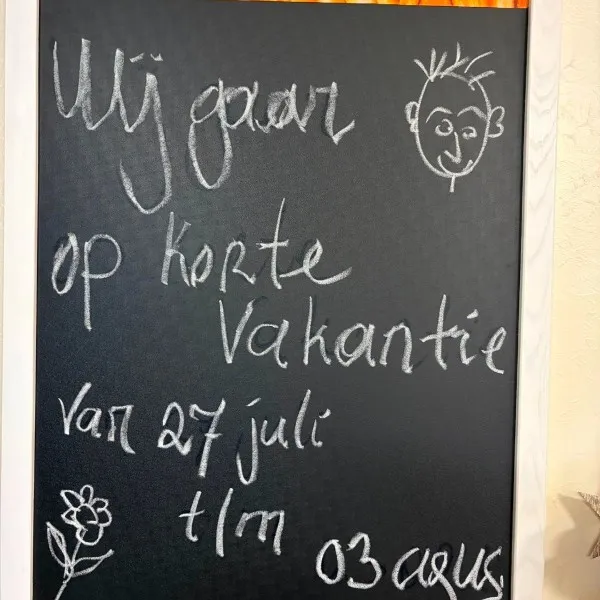 Wij gaan
op korte
Vakantie
van 27 juli
t/m
03 agus